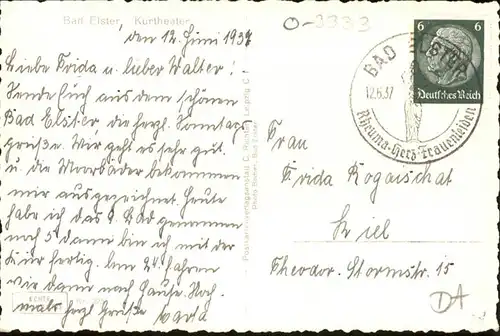 Bad Elster, Kurtheater
den 12. Juni 1937
Liebe Frida u. lieber Walter!
Sende Euch aus dem schönen
Bad Elster die herzl. Sonntags
grüße. Mir geht es sehr gut
u. die Moorbäder bekommen
mir ausgezeichnet. Heute
habe ich das 9. Bad genommen
noch 5 dann bin ich mit der
Kur fertig. Am 24. fahren
wir dann nach Hause. Noch
mals herzl Grüße
O-3333
6 6
Deutsches Reich
BAD ELSTER
12.6.37
Rheuma-Herz-Frauenleiden
Frau
Frida Rogaischat
Kiel
Theodor. Stormstr. 15
DA